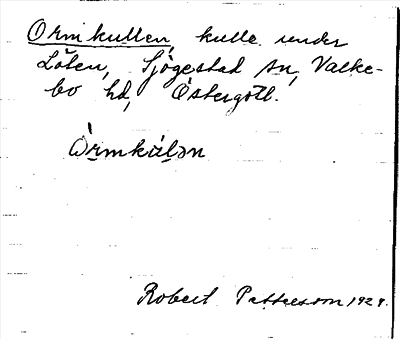 Ormkullen, kulle under
Löten, Sjögestad sn, Valke-
bo hd, Östergötl.
Òrmkúlən
Robert Pettersson 1929.